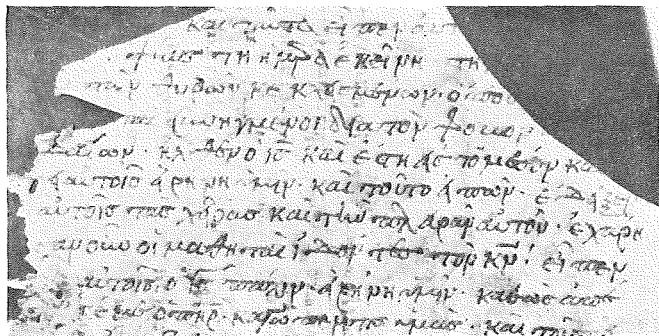 καὶ ταῦτα εἶπεν αὐτ
οψιας τῆ ἡμέρα ἐκείνη τῆ
τῶν θυρῶν κεκλεισμένων· ὅπου
συνηγμένοι διὰ τὸν φόβον
δαίων· ἦλθεν ὁ ις καὶ ἔστη εἰς τὸ μέσον κα
αὐτοῖς εἰρήνη ὑμῖν· καὶ τοῦτο εἰπών· ἔδειξεν
αὐτοῖς τὰς χεῖρας καὶ τὴν πλευρὰν αὐτοῦ· ἐχάρη
σαν οὖν οἱ μαθηταὶ ἰδόντες τὸν κν· εἶπεν
αὐτοῖς ὁ ις πάλιν· εἰρήνη ὑμῖν· καθὼς ἀπέσ
με ὁ πηρ κἀγὼ πέμπω ὑμᾶς· καὶ